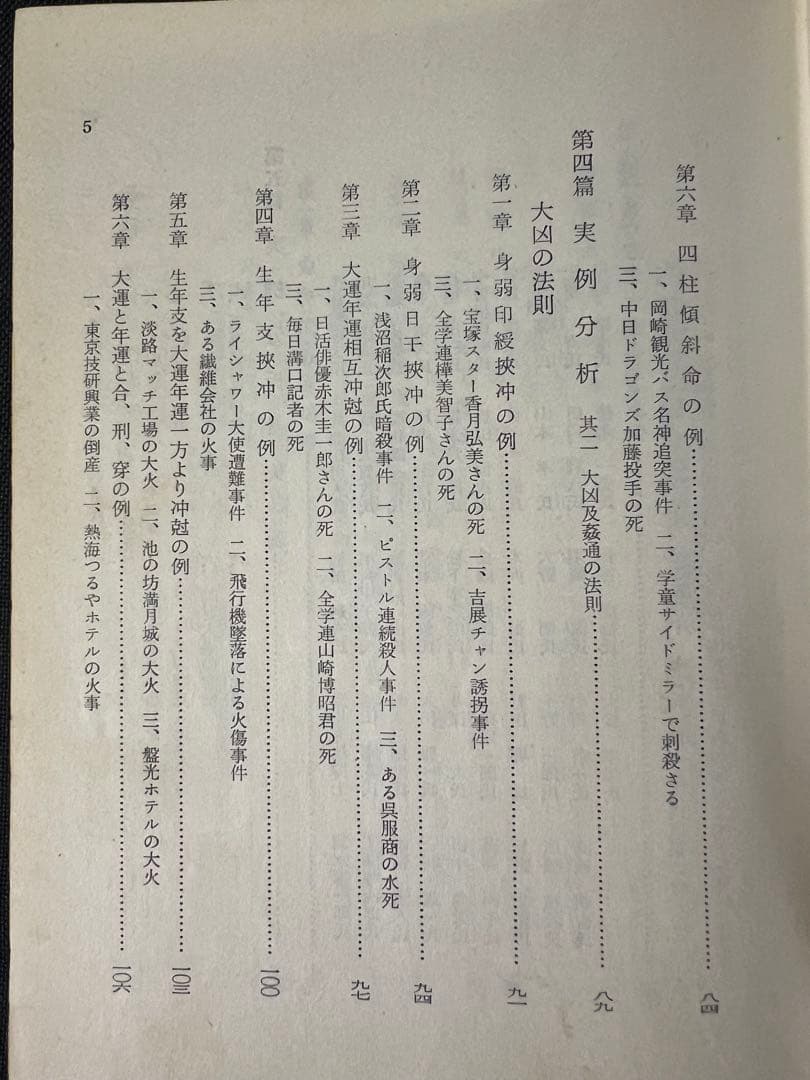 第六章 四柱傾斜命の例……………………八四
一、岡崎観光バス名神追突事件 二、学童サイドミラーで刺殺さる
三、中日ドラゴンズ加藤投手の死
第四篇 実例分析 其二 大凶及姦通の法則……………………八九
大凶の法則
第一章 身弱印綬挾冲の例……………………九一
一、宝塚スター香月弘美さんの死 二、吉展チャン誘拐事件
三、全学連樺美智子さんの死
第二章 身弱日干挾冲の例……………………九四
一、浅沼稲次郎氏暗殺事件 二、ピストル連続殺人事件 三、ある呉服商の水死
第三章 大運年運相互冲尅の例……………………九七
一、日活俳優赤木圭一郎さんの死 二、全学連山崎博昭君の死
三、毎日溝口記者の死
第四章 生年支挾冲の例……………………一〇〇
一、ライシャワー大使遭難事件 二、飛行機墜落による火傷事件
三、ある繊維会社の火事
第五章 生年支を大運年運一方より冲尅の例……………………一〇三
一、淡路マッチ工場の大火 二、池の坊満月城の大火 三、盤光ホテルの大火
第六章 大運と年運と合、刑、穿の例……………………一〇六
一、東京技研興業の倒産 二、熱海つるやホテルの火事
5